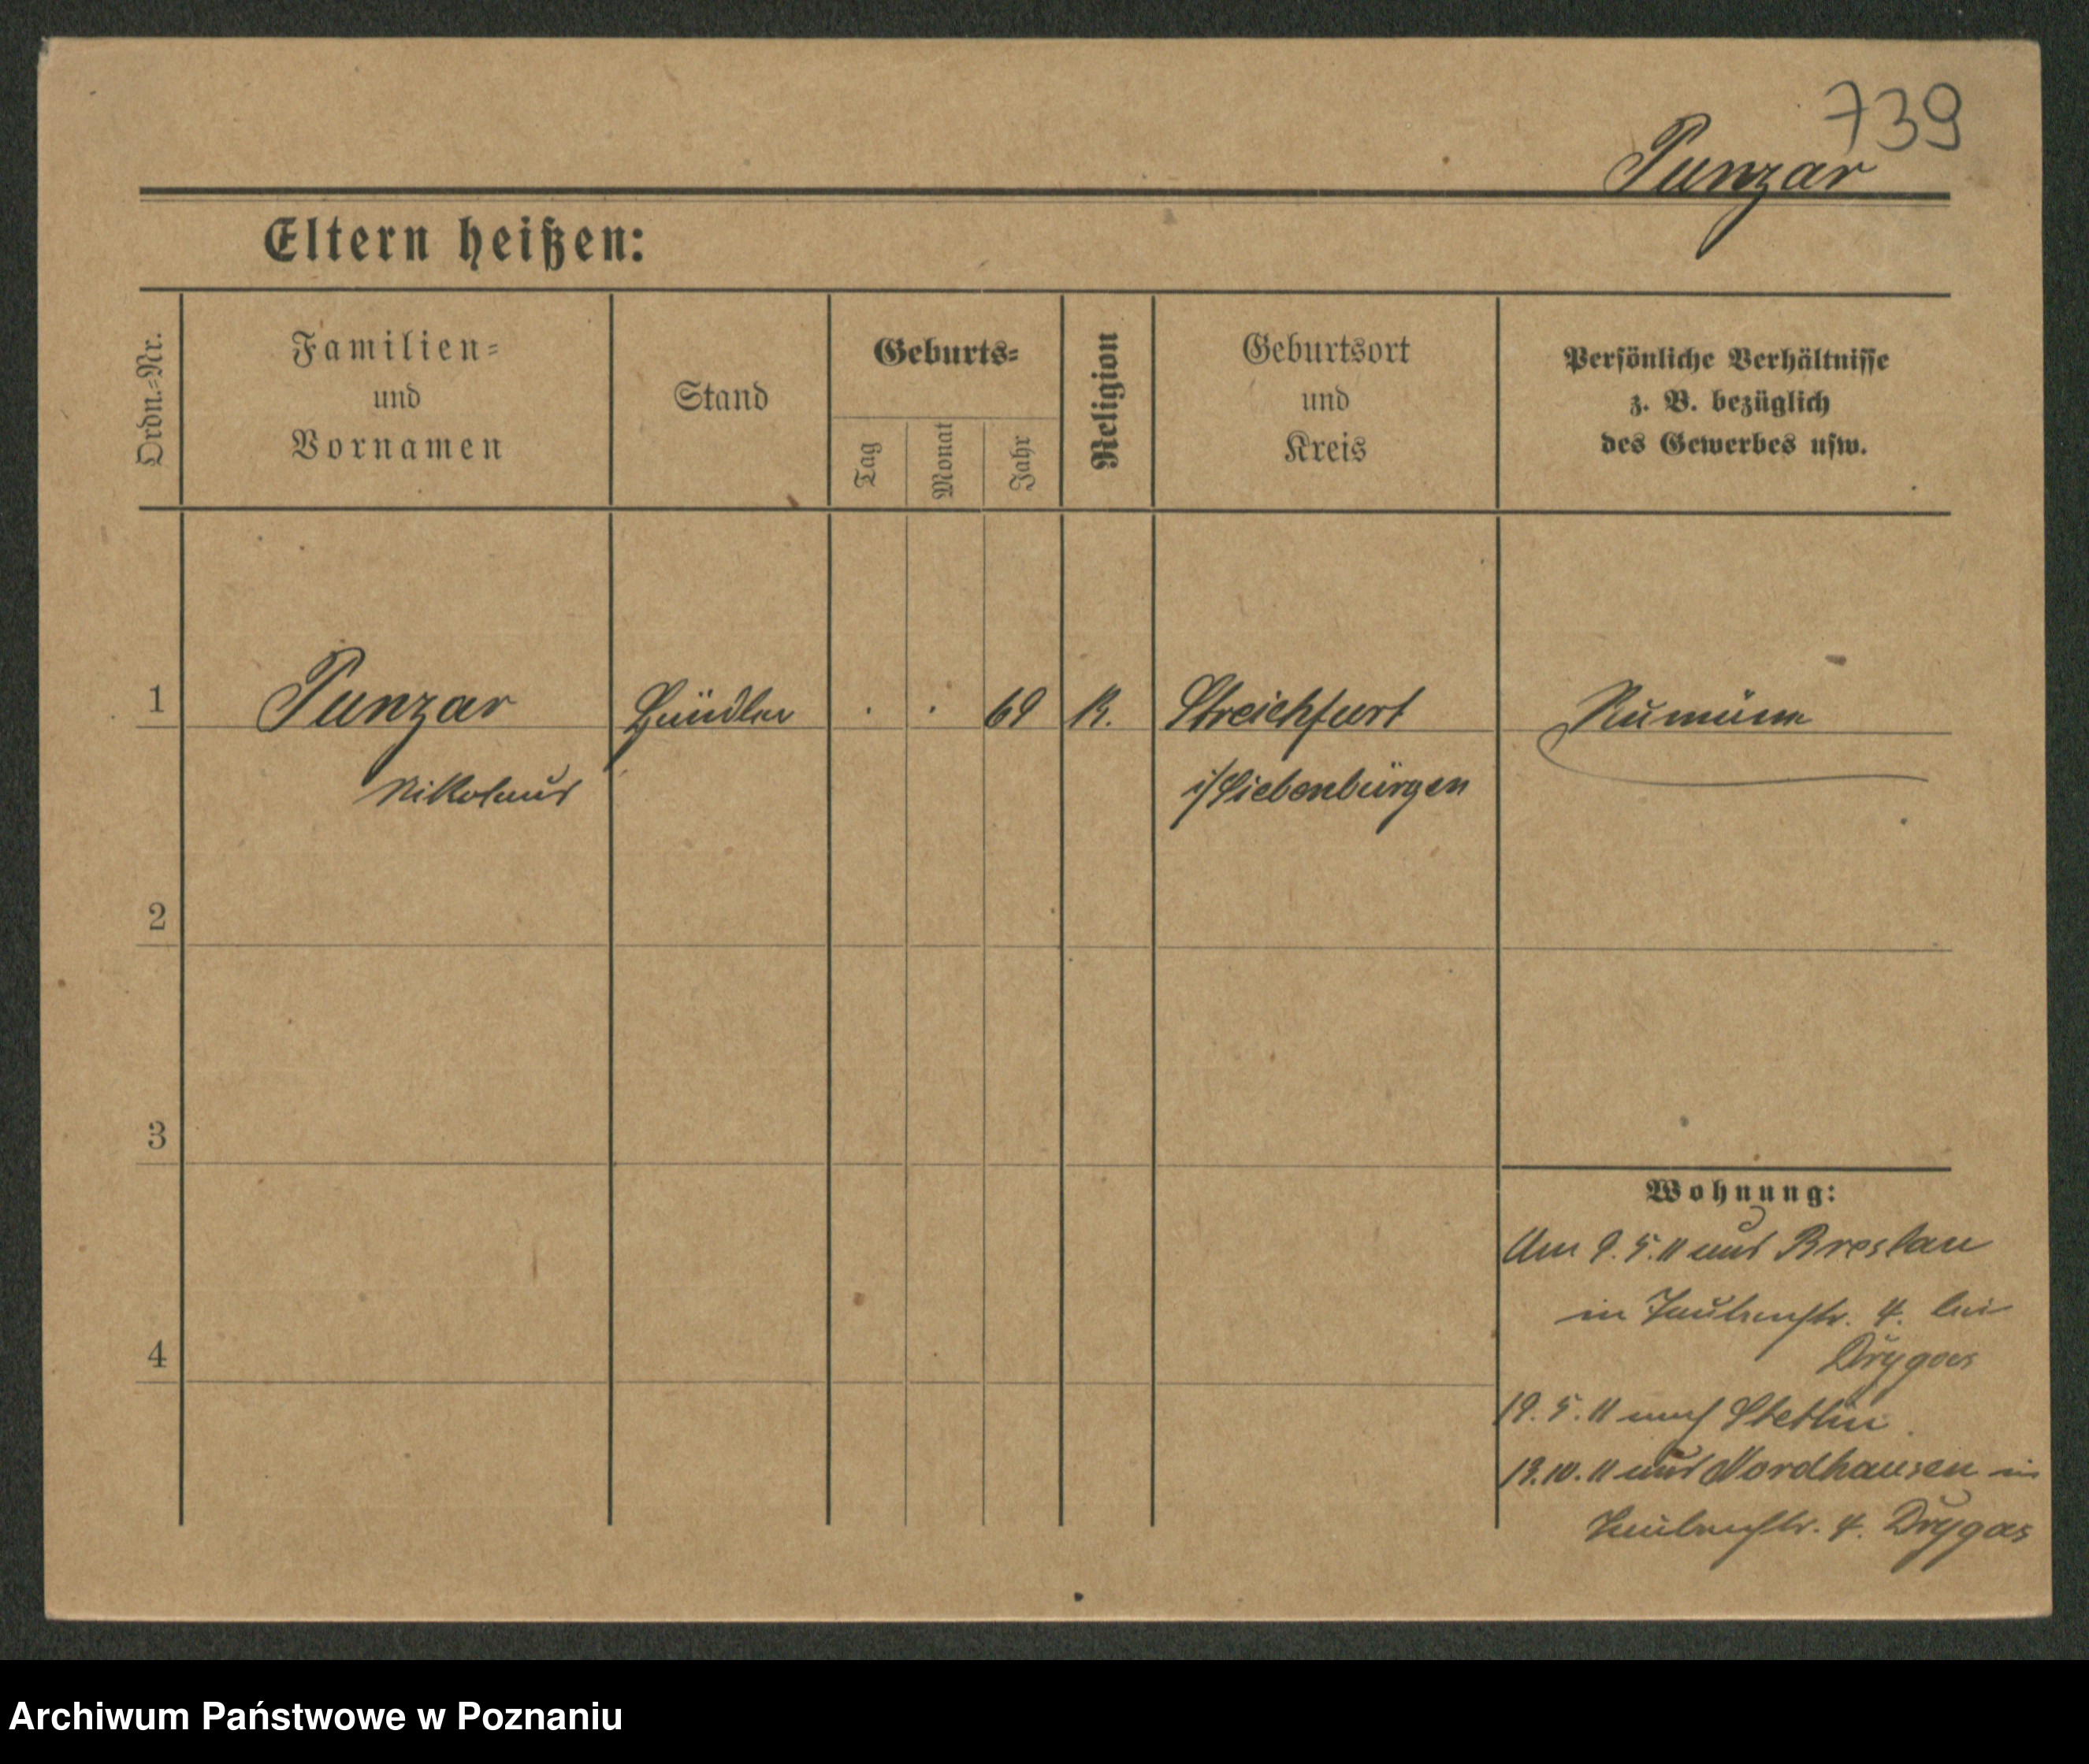 739
Punzar
Eltern heißen:
Ordn.=Nr.
Familien=
und
Vornamen
Stand
Geburts=
Tag
Monat
Jahr
Religion
Geburtsort
und
Kreis
Persönliche Verhältnisse
z. B. bezüglich
des Gewerbes usw.
1
Punzar
Händler
. . 69
K.
Streichfurt
Rumäne
Nikolaus
i/Siebenbürgen
2
3
4
Wohnung:
Am 9.5.11 aus Breslau
in Taubenstr. 4. bei
Drygas
19.5.11 nach Stettin
13.10.11 aus Nordhausen in
Taubenstr. 4. Drygas
Archiwum Państwowe w Poznaniu